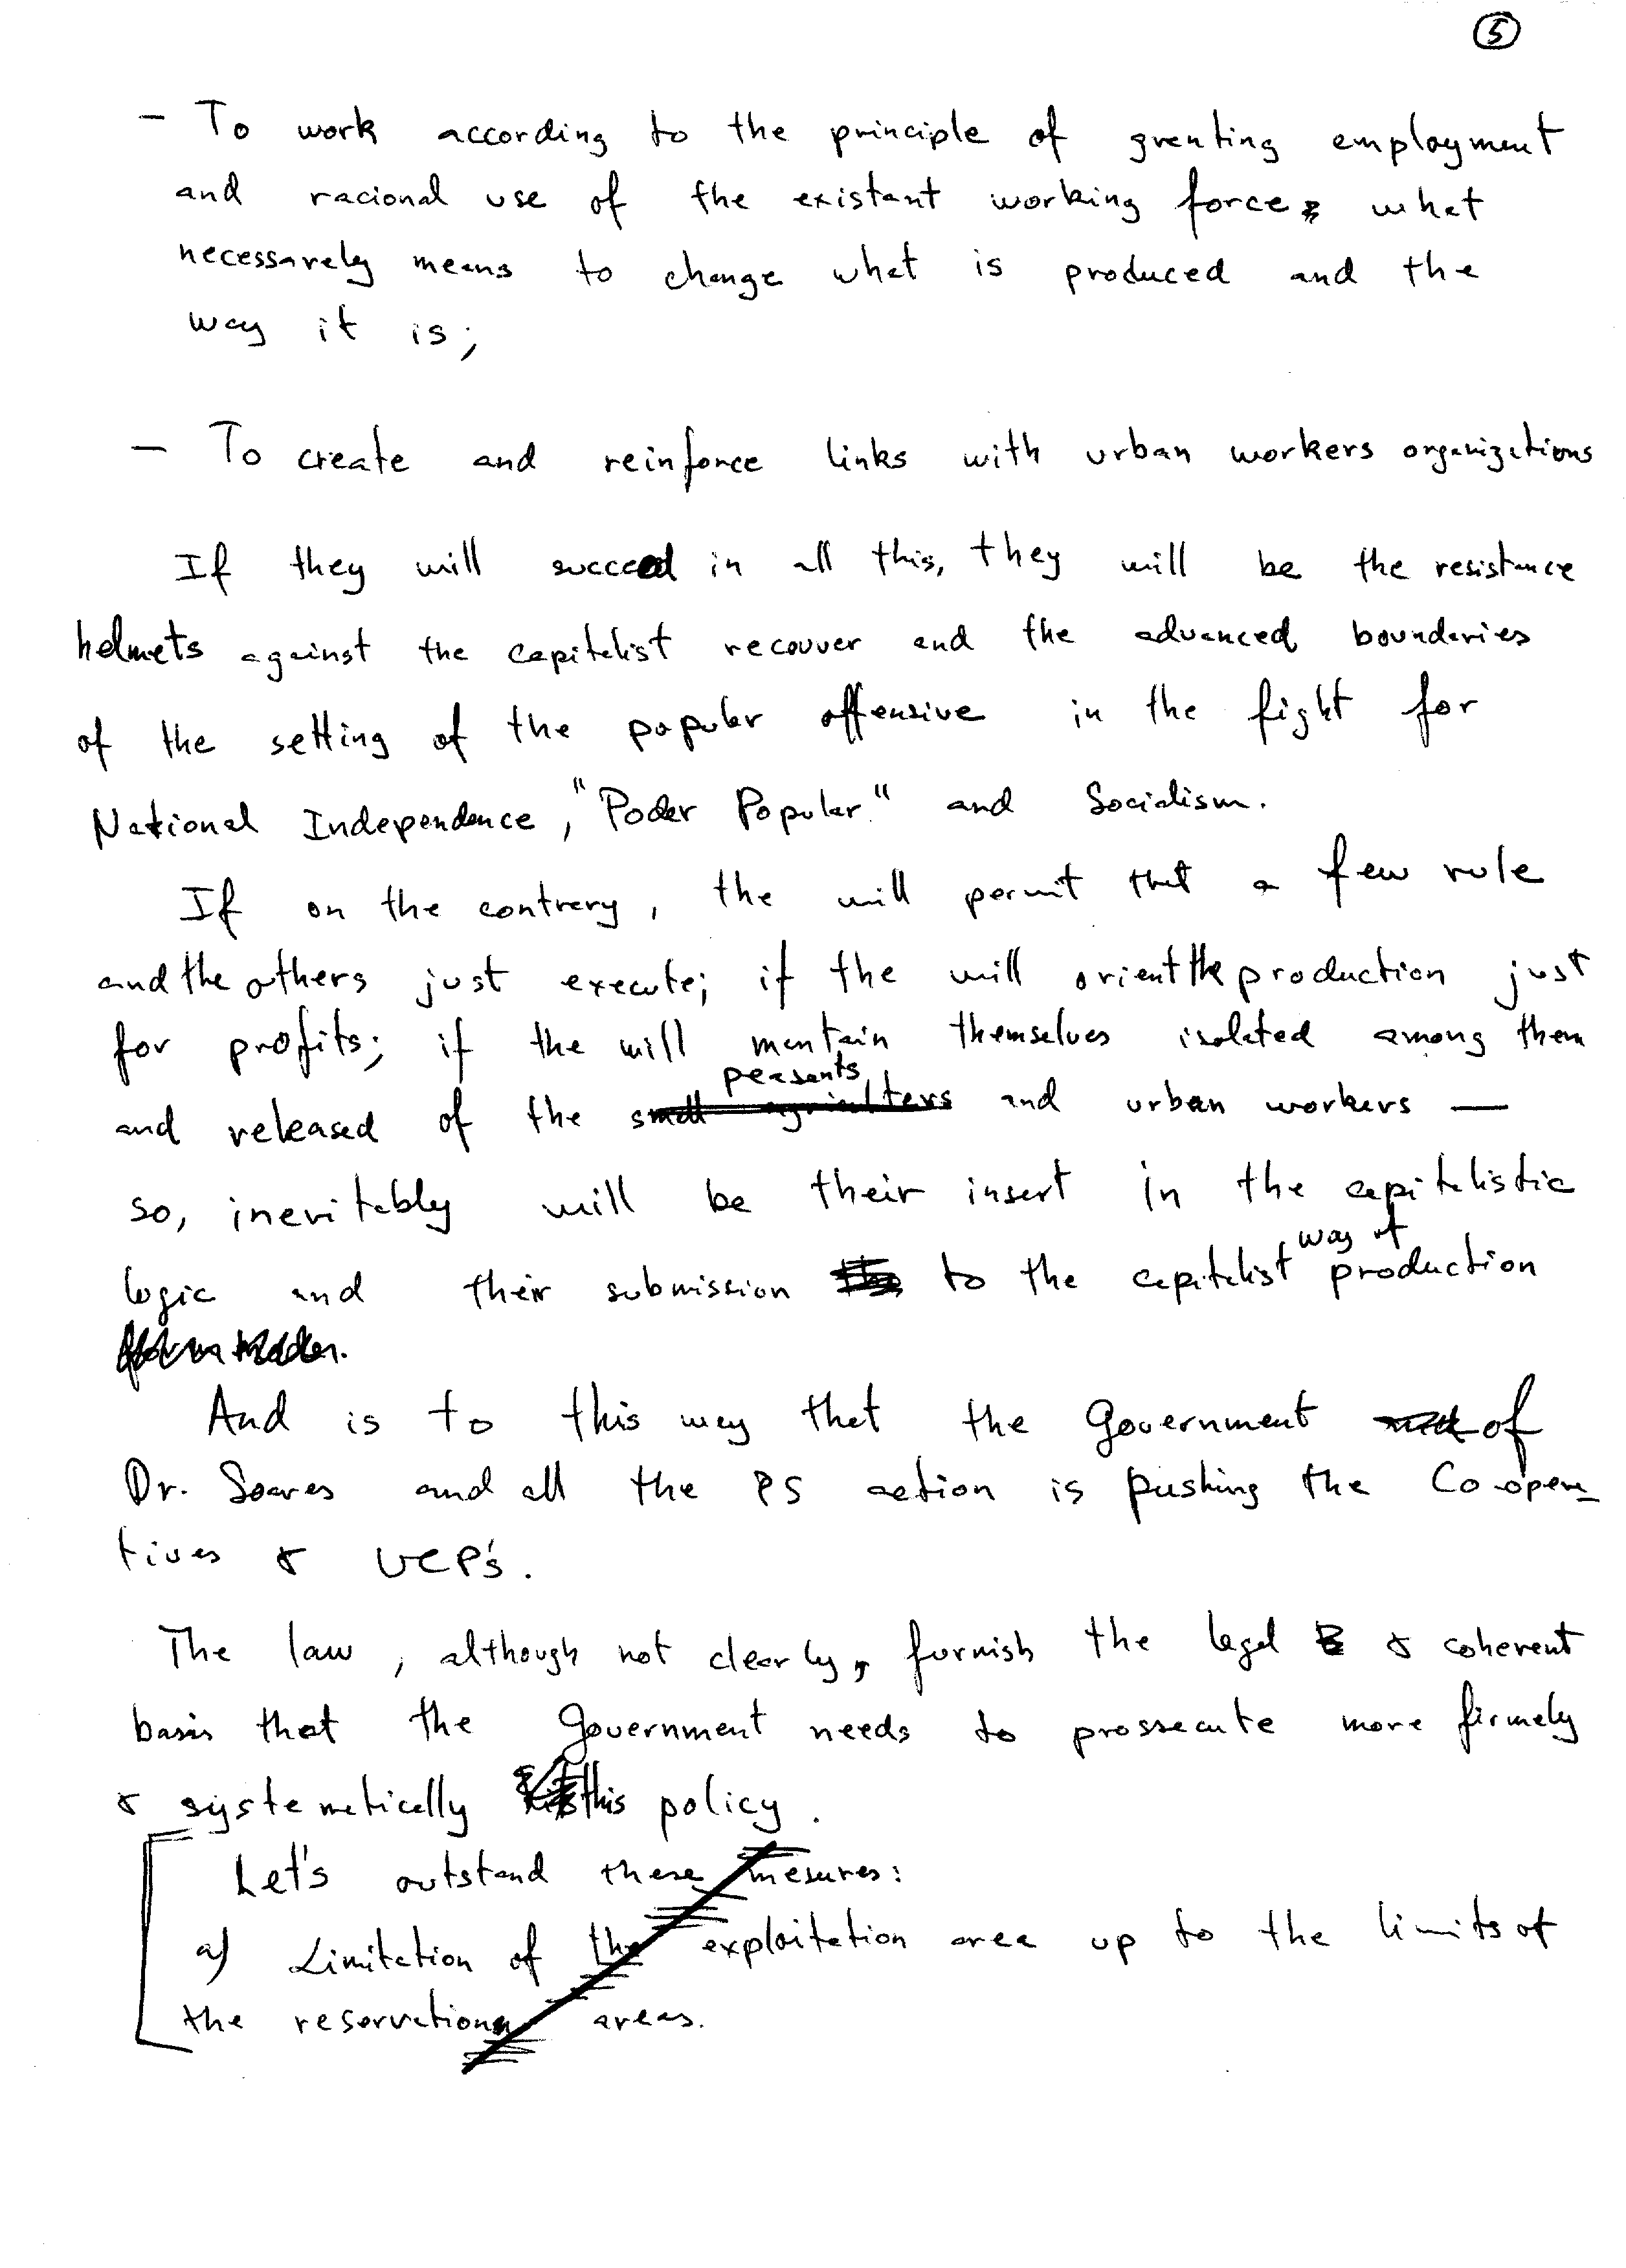 5
- To work according to the principle of grenting employment
and racional use of the existent working force, what
necessarely means to change what is produced and the
way it is;
- To create and reinforce links with urban workers organizations
If they will succeed in all this, they will be the resistance
helmets against the capitalist recouver and the advanced boundaries
of the setting of the popular offensive in the fight for
National Independence, "Poder Popular" and Socialism.
If on the contrary, the will permit that a few rule
and the others just execute; if the will orient the production just
for profits; if the will mentain themselves isolated among them
peasants
and released of the small agriculters and urban workers —
so, inevitably will be their insert in the capitalistic
way of
logic and their submission to the capitalist production
And is to this way that the Government of
Dr. Soares and all the PS action is pushing the Co-opera-
tives & UCP's.
The law, although not clearly, furnish the legal & coherent
basis that the Government needs to prossecute more firmely
& systematically this policy.
Let's outstand these mesures:
a) Limitation of the exploitation area up to the limits of
the reservation areas.